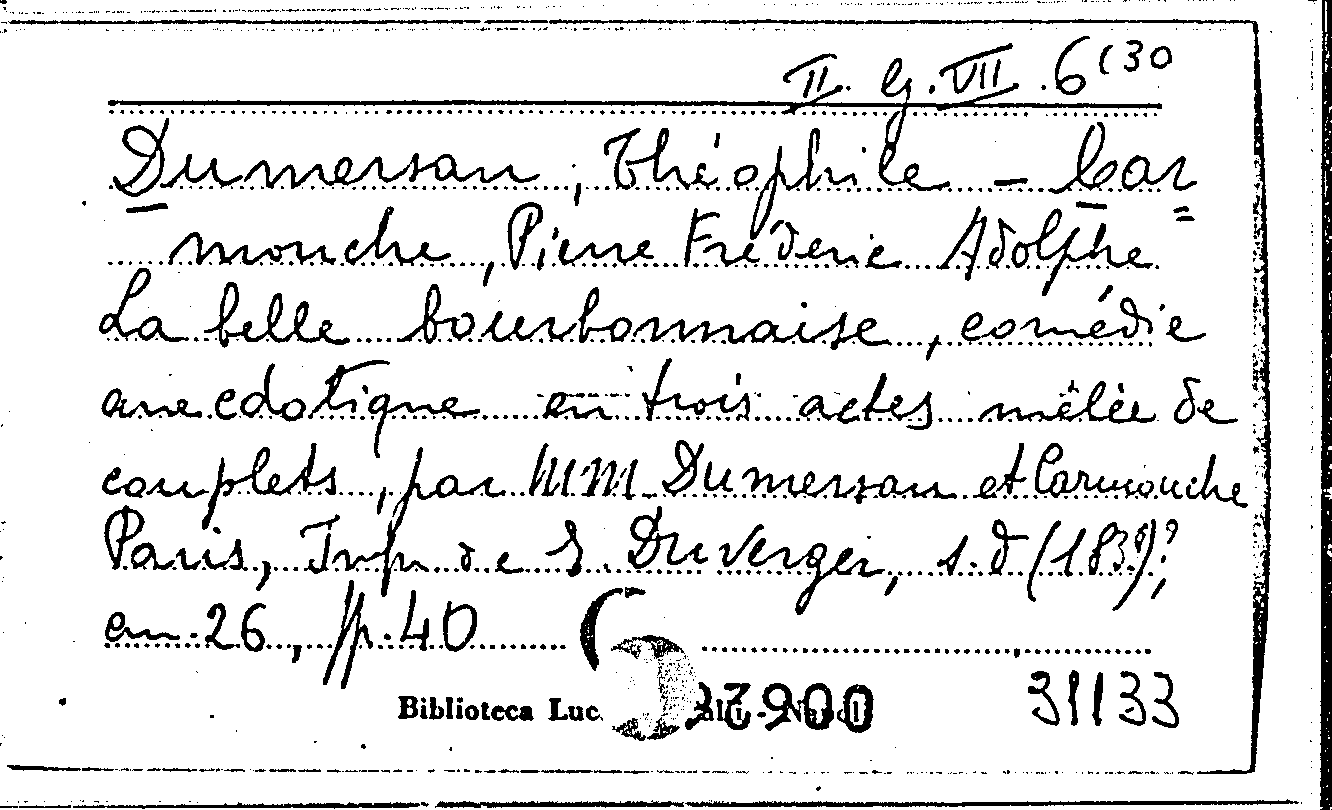 II. G. VII. 6(30
Dumersan, Théophile - Car=
mouche, Pierre Fréderic Adolphe
La belle bourbonnaise, comédie
anecdotique en trois actes mêlée de
couplets, par MM Dumersan et Carmouche
Paris, Imp. de E. Duverger, s.d (183?)?,
cm. 26, pp. 40
Biblioteca Luc
33900 31133